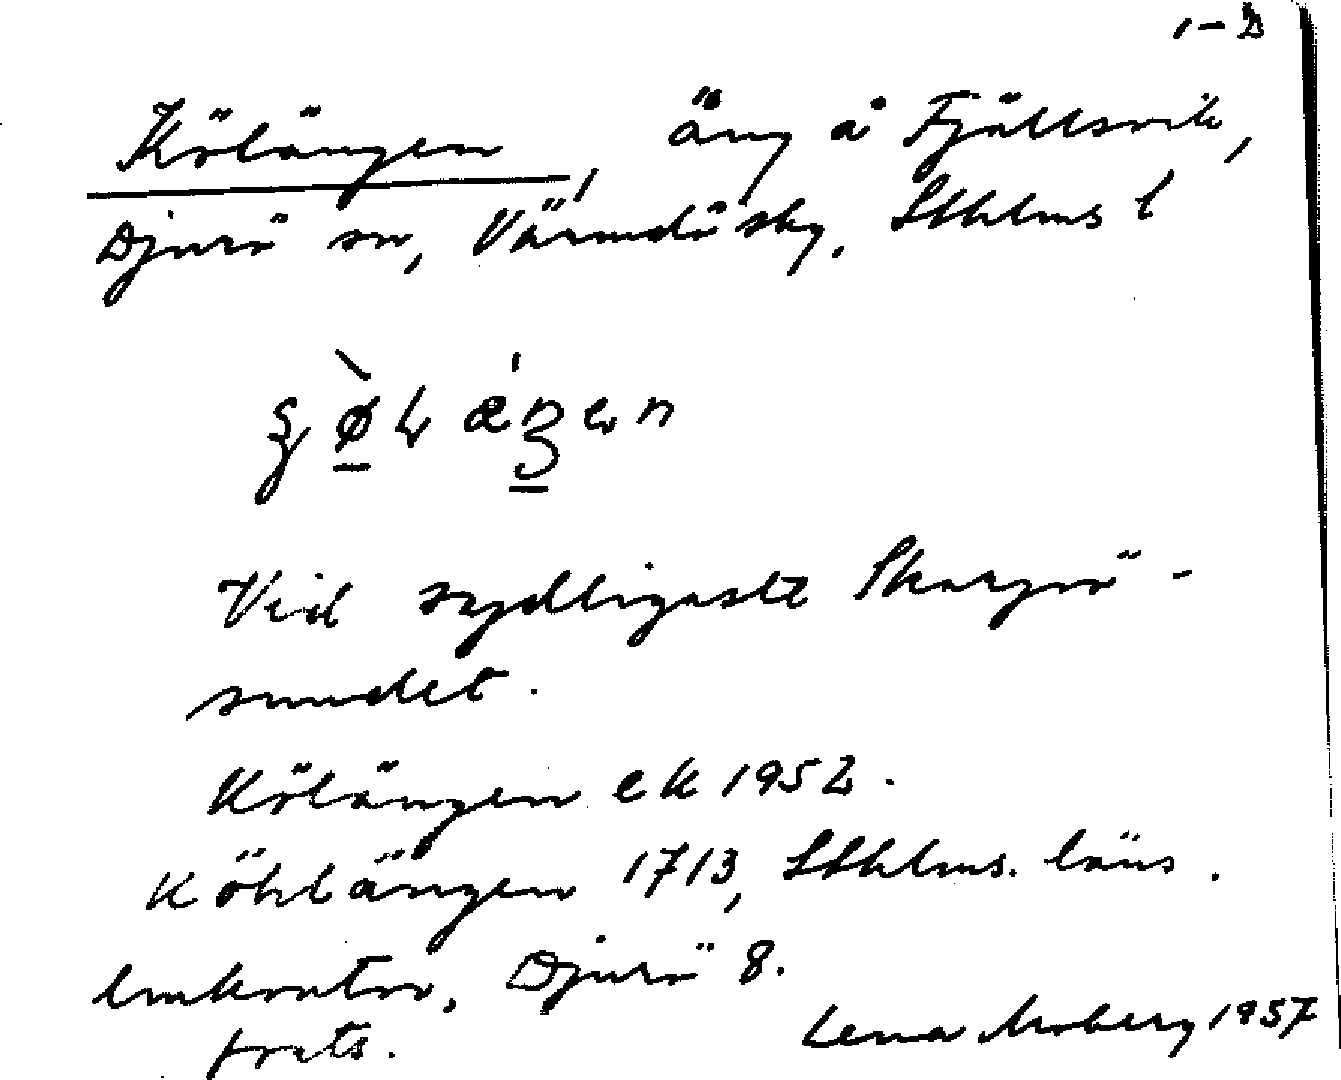 1-D
Kölängen, äng å Fjällsvik,
Djurö sn, Värmdö skg. Sthlms l
Vid sydligaste Skarpö-
sundet.
Kölängen ek 1952.
Köhlängen 1713, Sthlms. läns.
Djurö 8.
Lena Moberg 1957